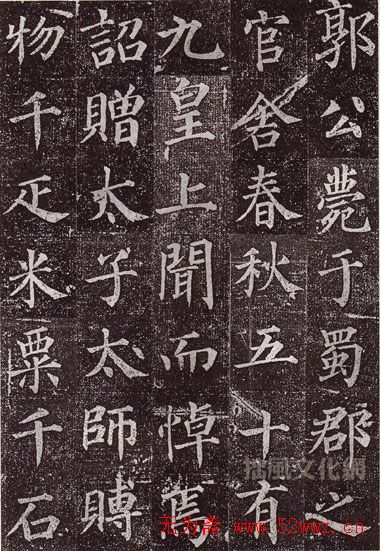 郭公薨于蜀郡之
官舍春秋五十有
九皇上聞而悼焉
詔贈太子太師賻
物千疋米粟千石
拾風文化網
无为斋 www.52wwz.cn